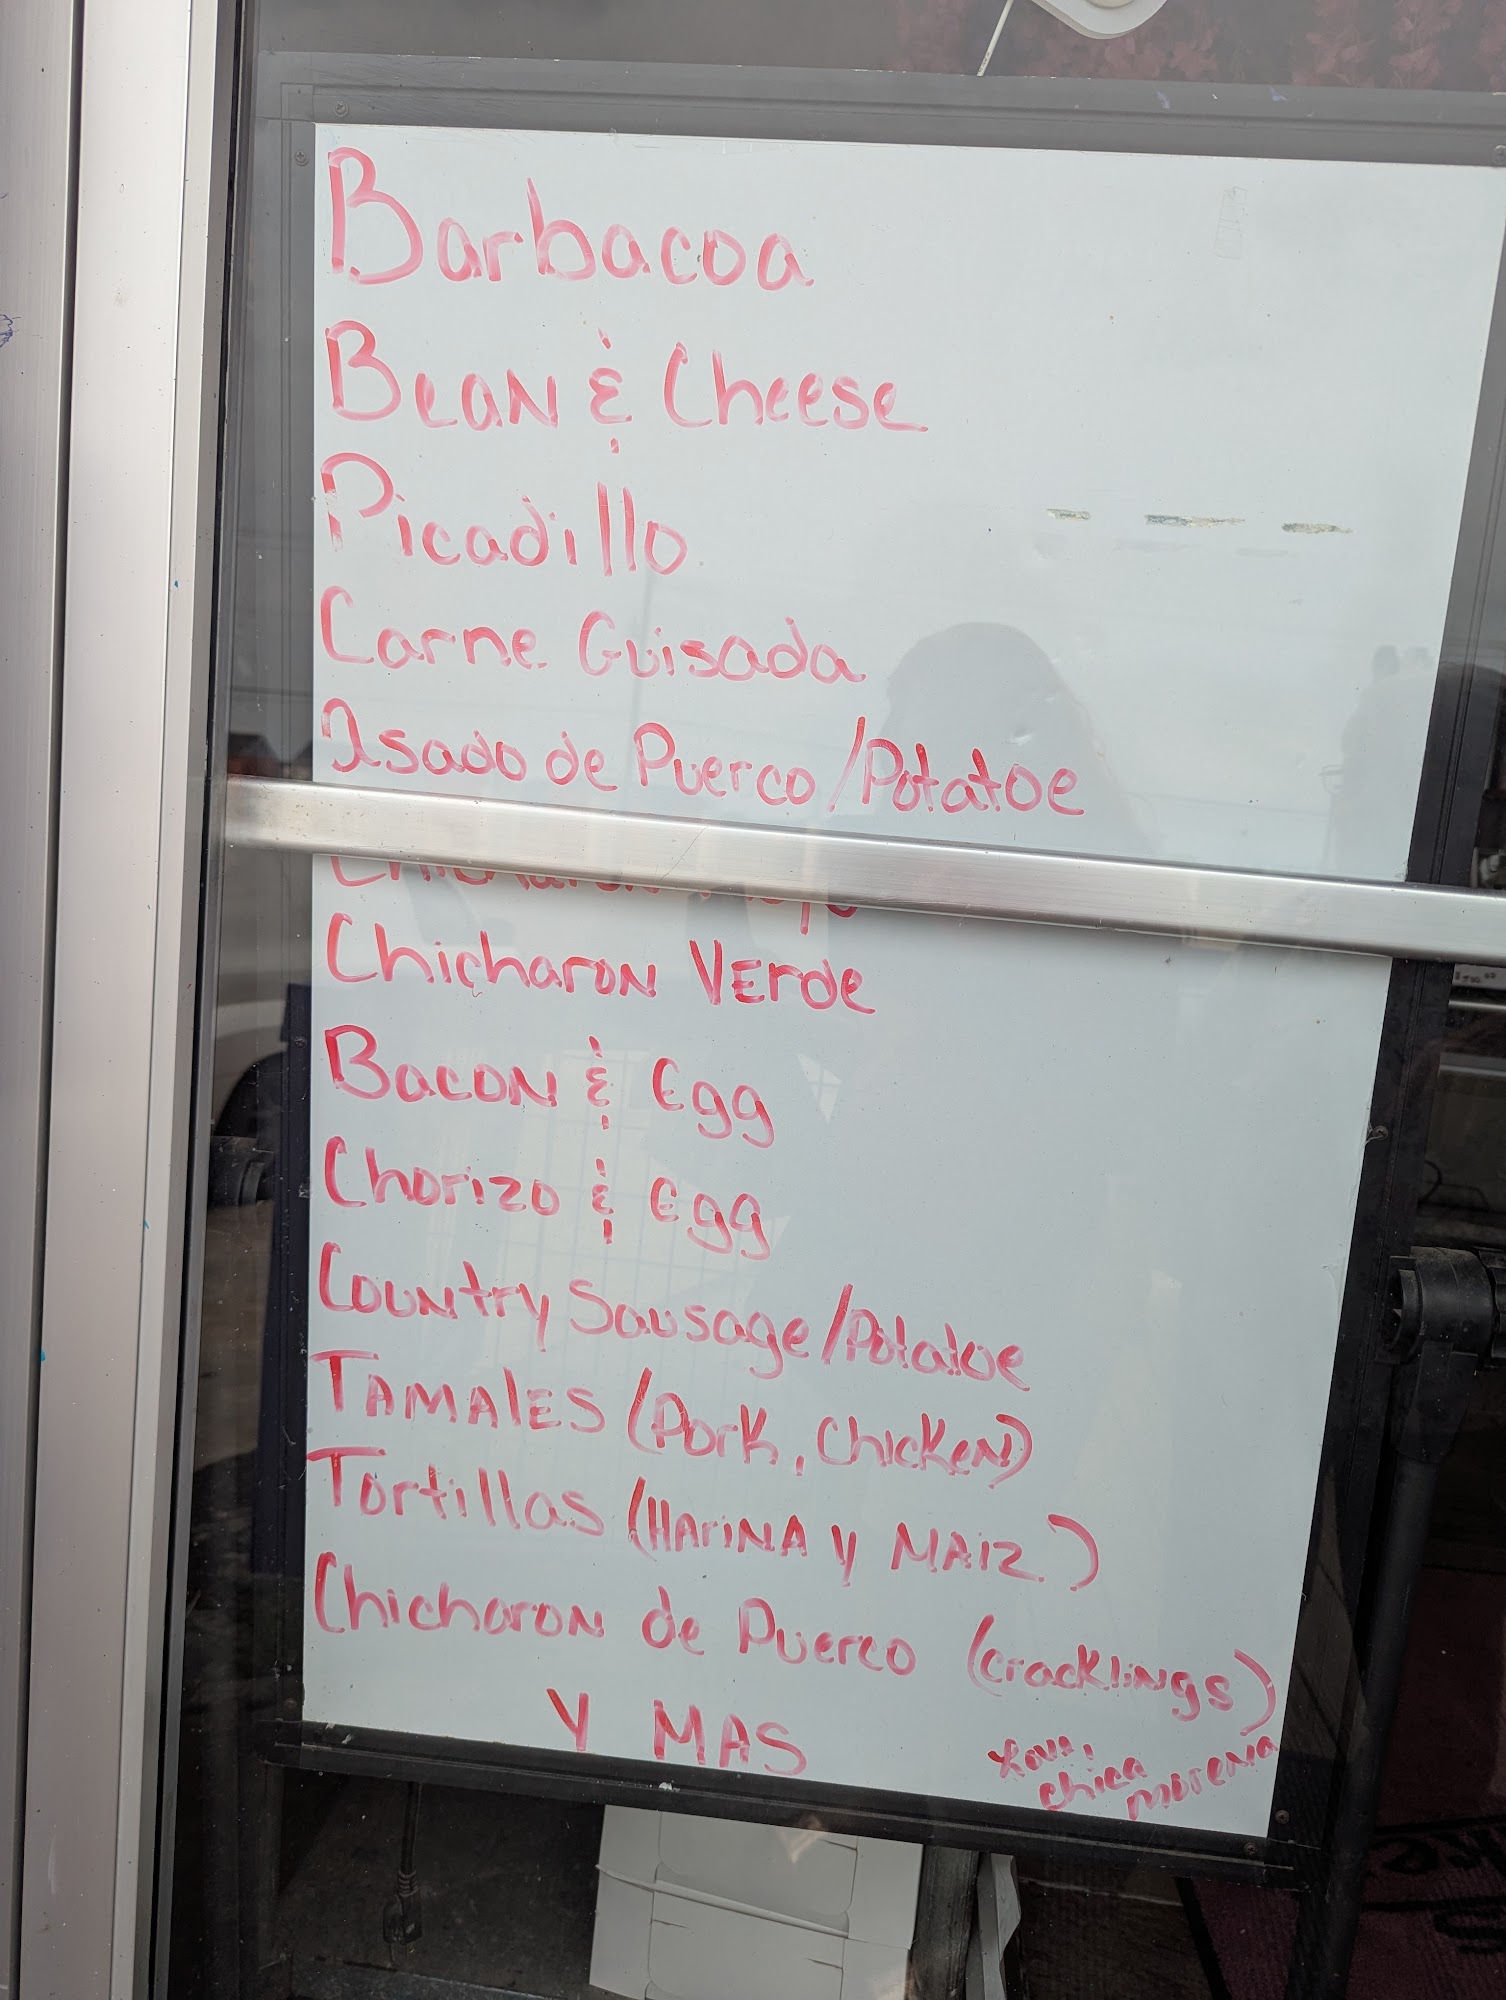 Barbacoa
Bean & Cheese
Picadillo
Carne Guisada
Asado de Puerco/Potatoe
Chicharon Rojo
Chicharon Verde
Bacon & Egg
Chorizo & Egg
Country Sausage/Potatoe
TAMALES (Pork, Chicken)
Tortillas (HARINA y MAIZ)
Chicharon de Puerco (cracklings)
Y MAS
Love,
chica
morena